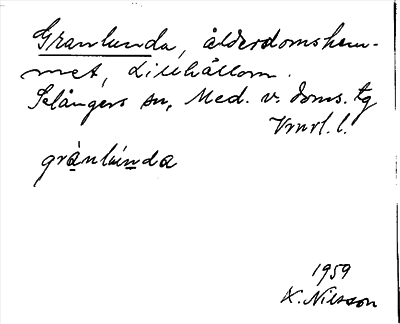 Granlunda, ålderdomshem-
met, Lillhällom.
Selångers sn, Med. v. doms. tg
Vrnrl. l.
grànlúnda
1959
K. Nilsson